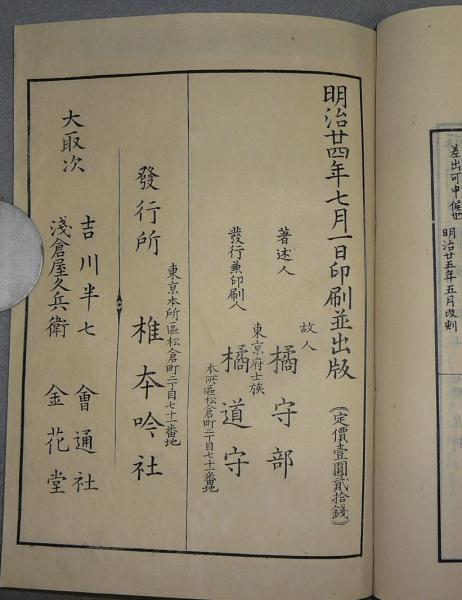 差出可申候也
明治廿五年五月改刻
明治廿四年七月一日印刷並出版
(定價壹圓貳拾錢)
著述人
故人
橘守部
發行兼印刷人
東京府士族
橘道守
本所區松倉町二丁目七十一番地
東京本所區松倉町二丁目七十一番地
發行所
椎本吟社
大取次
吉川半七
會通社
淺倉屋久兵衛
金花堂